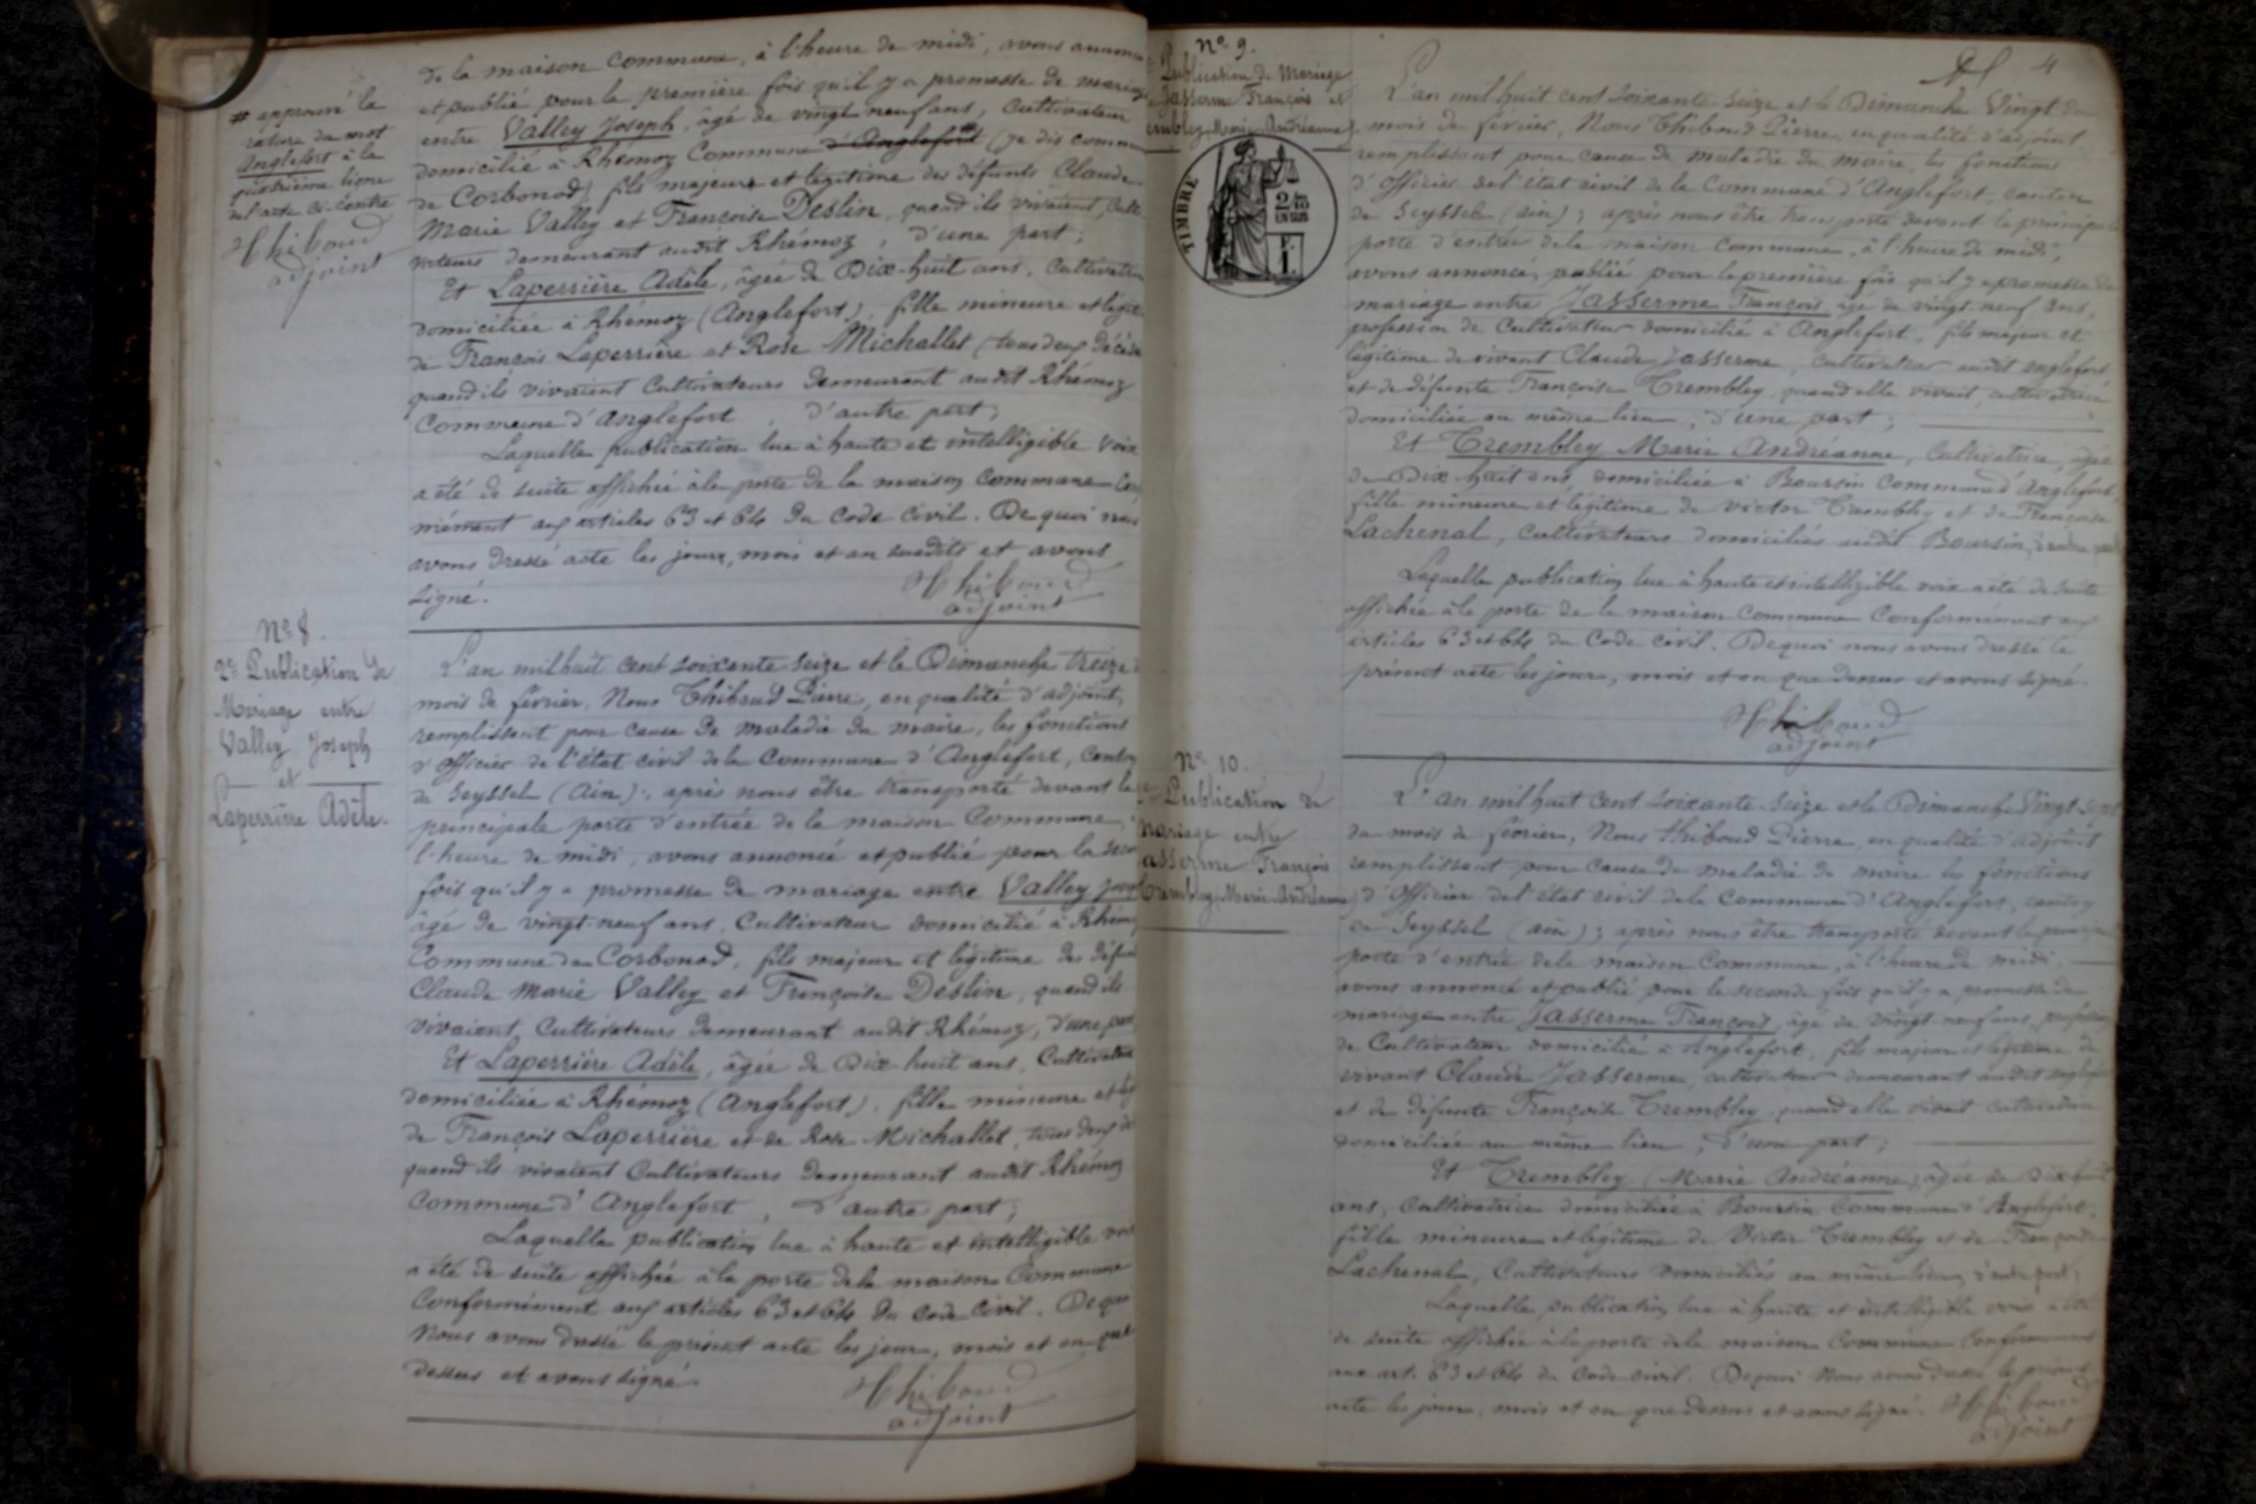 # approuvé la
rature du mot
Anglefort à la
quatrième ligne
de l'acte ci-contre
Thiboud
adjoint
de la maison commune, à l'heure de midi, avons annoncé
et publié pour la première fois qu'il y a promesse de mariage
entre Valley Joseph, âgé de vingt neuf ans, cultivateur
domicilié à Rhémoz Commune d'Anglefort # (je dis commune
de Corbonod) fils majeur et légitime des défunts Claude
Marie Valley et Françoise Deslin, quand ils vivaient, culti
vateurs demeurant audit Rhémoz, d'une part;
Et Laperrière Adèle, âgée de Dix-huit ans, cultivatrice
domiciliée à Rhémoz (Anglefort), fille mineure et légit
de François Laperrière et Rose Michallet (tous deux décédés
quand ils vivaient Cultivateurs demeurant audit Rhémoz
Commune d'Anglefort, d'autre part;
Laquelle publication lue à haute et intelligible voix
a été de suite affichée à la porte de la maison commune
mément aux articles 63 et 64 du Code civil. De quoi nous
avons dressé acte les jour, mois et an susdits et avons
signé.
Thiboud
adjoint
No 8.
2e Publication de
Mariage entre
Valley Joseph
et
Laperrière Adèle.
L'an mil huit cent soixante seize et le Dimanche treize
mois de février, Nous Thiboud Pierre, en qualité d'adjoint,
remplissant pour cause de maladie du maire, les fonctions
d'Officier de l'état civil de la Commune d'Anglefort, canton
de Seyssel (Ain); après nous être transporté devant la
principale porte d'entrée de la maison Commune,
l'heure de midi, avons annoncé et publié pour la seconde
fois qu'il y a promesse de mariage entre Valley Joseph
âgé de vingt-neuf ans, Cultivateur domicilié à Rhémoz
Commune de Corbonod, fils majeur et légitime des défunts
Claude Marie Valley et Françoise Deslin, quand ils
vivaient, Cultivateurs demeurant audit Rhémoz, d'une part
Et Laperrière Adèle, âgée de Dix huit ans, Cultivatrice
domiciliée à Rhémoz (Anglefort), fille mineure et
de François Laperrière et de Rose Michallet, tous deux
quand ils vivaient Cultivateurs demeurant audit Rhémoz
Commune d'Anglefort, d'autre part;
Laquelle publication lue à haute et intelligible voix
a été de suite affichée à la porte de la maison Commune
Conformément aux articles 63 et 64 du Code civil. De quoi
Nous avons dressé le présent acte les jour, mois et an que
dessus et avons signé.
Thiboud
adjoint
4
No 9.
Publication de Mariage
Jasserme François et
Trembley Marie Andréanne
TIMBRE
2/10
EN SUS
L'an mil huit cent soixante seize et le Dimanche Vingt du
mois de février, Nous Thiboud Pierre, en qualité d'adjoint
remplissant pour cause de maladie du maire, les fonctions
d'Officier de l'état civil de la Commune d'Anglefort, canton
de Seyssel (ain); après nous être transporté devant la principale
porte d'entrée de la maison commune, à l'heure de midi,
avons annoncé, publié pour la première fois qu'il y a promesse de
mariage entre Jasserme François, âgé de vingt-neuf ans,
profession de Cultivateur domicilié à Anglefort, fils majeur et
légitime de vivant Claude Jasserme, cultivateur audit anglefort
et de défunte Françoise Trembley, quand elle vivait, cultivatrice
domiciliée au même lieu, d'une part;
Et Trembley Marie Andréanne, Cultivatrice, âgée
de Dix-huit ans, domiciliée à Boursin Commune d'Anglefort,
fille mineure et légitime de Victor Trembley et de Françoise
Lachenal, Cultivateurs domiciliés audit Boursin, d'autre part
Laquelle publication lue à haute et intelligible voix a été de suite
affichée à la porte de la maison Commune Conformément aux
articles 63 et 64 du Code civil. De quoi nous avons dressé le
présent acte les jour, mois et an que dessus et avons signé.
Thiboud
adjoint
No 10.
Publication de
Mariage entre
Jasserme François
Trembley Marie Andréanne
L'an mil huit cent soixante-seize et le Dimanche Vingt-sept
du mois de février, Nous Thiboud Pierre, en qualité d'adjoint
remplissant pour cause de maladie du maire les fonctions
d'Officier de l'état civil de la Commune d'Anglefort, canton
de Seyssel (ain); après nous être transporté devant la principale
porte d'entrée de la maison Commune, à l'heure de midi,
avons annoncé et publié pour la seconde fois qu'il y a promesse de
mariage entre Jasserme François, âgé de vingt-neuf ans, profession
de Cultivateur domicilié à Anglefort, fils majeur et légitime de
vivant Claude Jasserme, cultivateur demeurant audit anglefort
et de défunte Françoise Trembley, quand elle vivait cultivatrice
domiciliée au même lieu, d'une part;
Et Trembley Marie Andréanne, âgée de Dix huit
ans, Cultivatrice domiciliée à Boursin Commune d'Anglefort,
fille mineure et légitime de Victor Trembley et de Françoise
Lachenal, Cultivateurs domiciliés au même lieu, d'autre part;
Laquelle publication lue à haute et intelligible voix a été
de suite affichée à la porte de la maison Commune Conformément
aux art. 63 et 64 du Code civil. De quoi Nous avons dressé le présent
acte les jour, mois et an que dessus et avons signé. Thiboud
adjoint